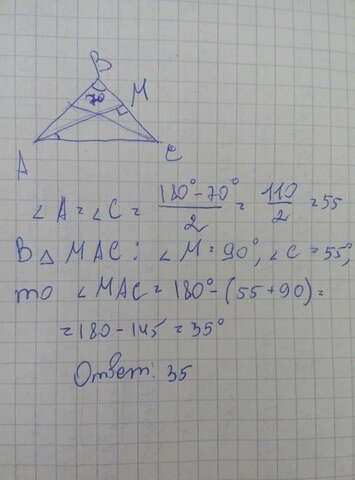 B
70
M
A
C
∠A = ∠C = (180° - 70°)/2 = 110/2 = 55
В △ MAC: ∠M = 90°, ∠C = 55°,
то ∠MAC = 180° - (55 + 90) =
= 180 - 145 = 35°
Ответ: 35